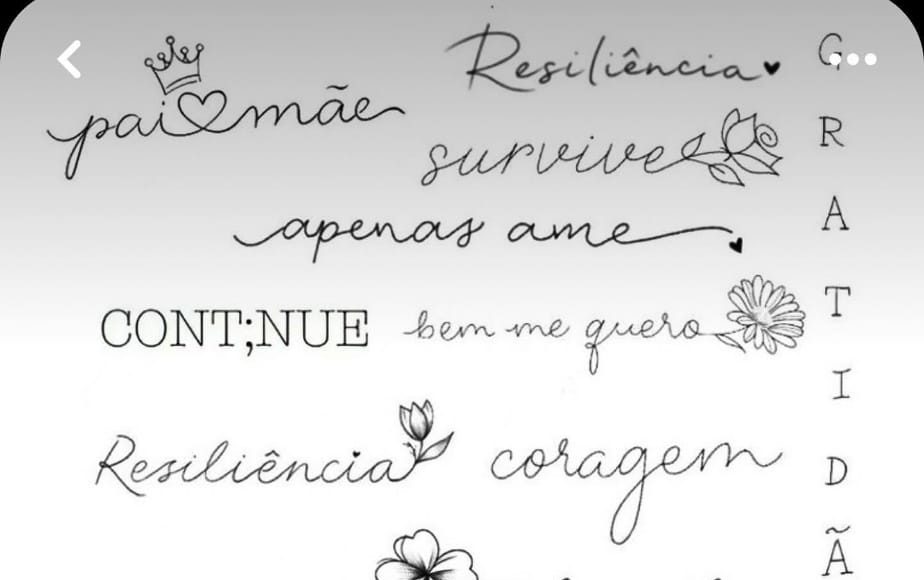 pai mãe
Resiliência
survive
apenas ame
CONT;NUE
bem me quero
Resiliência
coragem
G
R
A
T
I
D
Ã